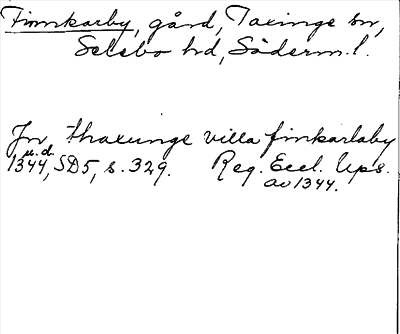 Finnkarby, gård, Taxinge sn,
Selebo hd, Söderm.l.
Jn thaxunge villa finkarlaby
u.d.
1344, SD5, s. 329. Reg. Eccl. Ups.
av 1344.